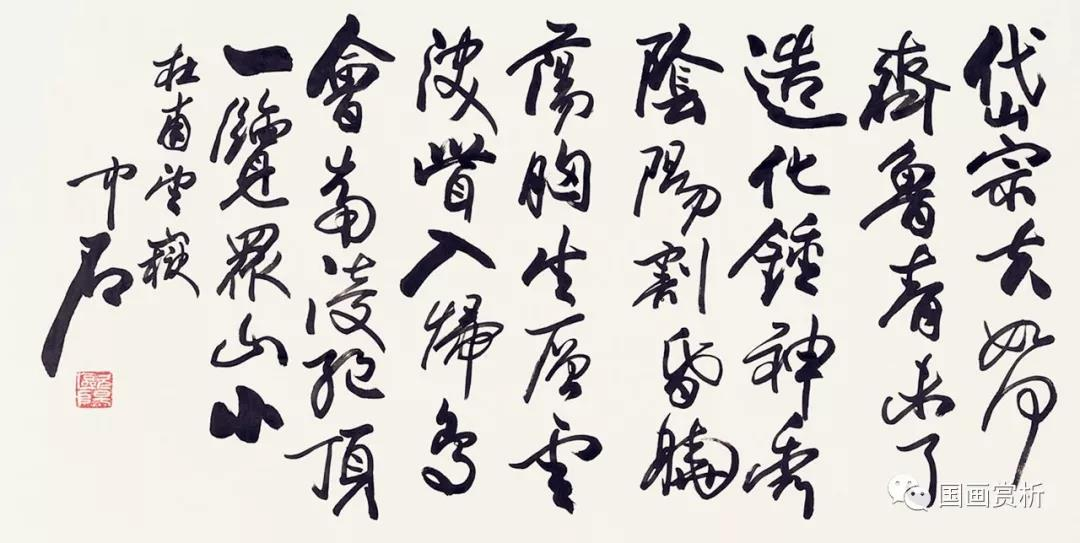 岱宗夫如何
齊魯青未了
造化鍾神秀
陰陽割昏曉
蕩胸生層雲
決眥入歸鳥
會當淩絕頂
一覽眾山小
杜甫望嶽
中石
国画赏析